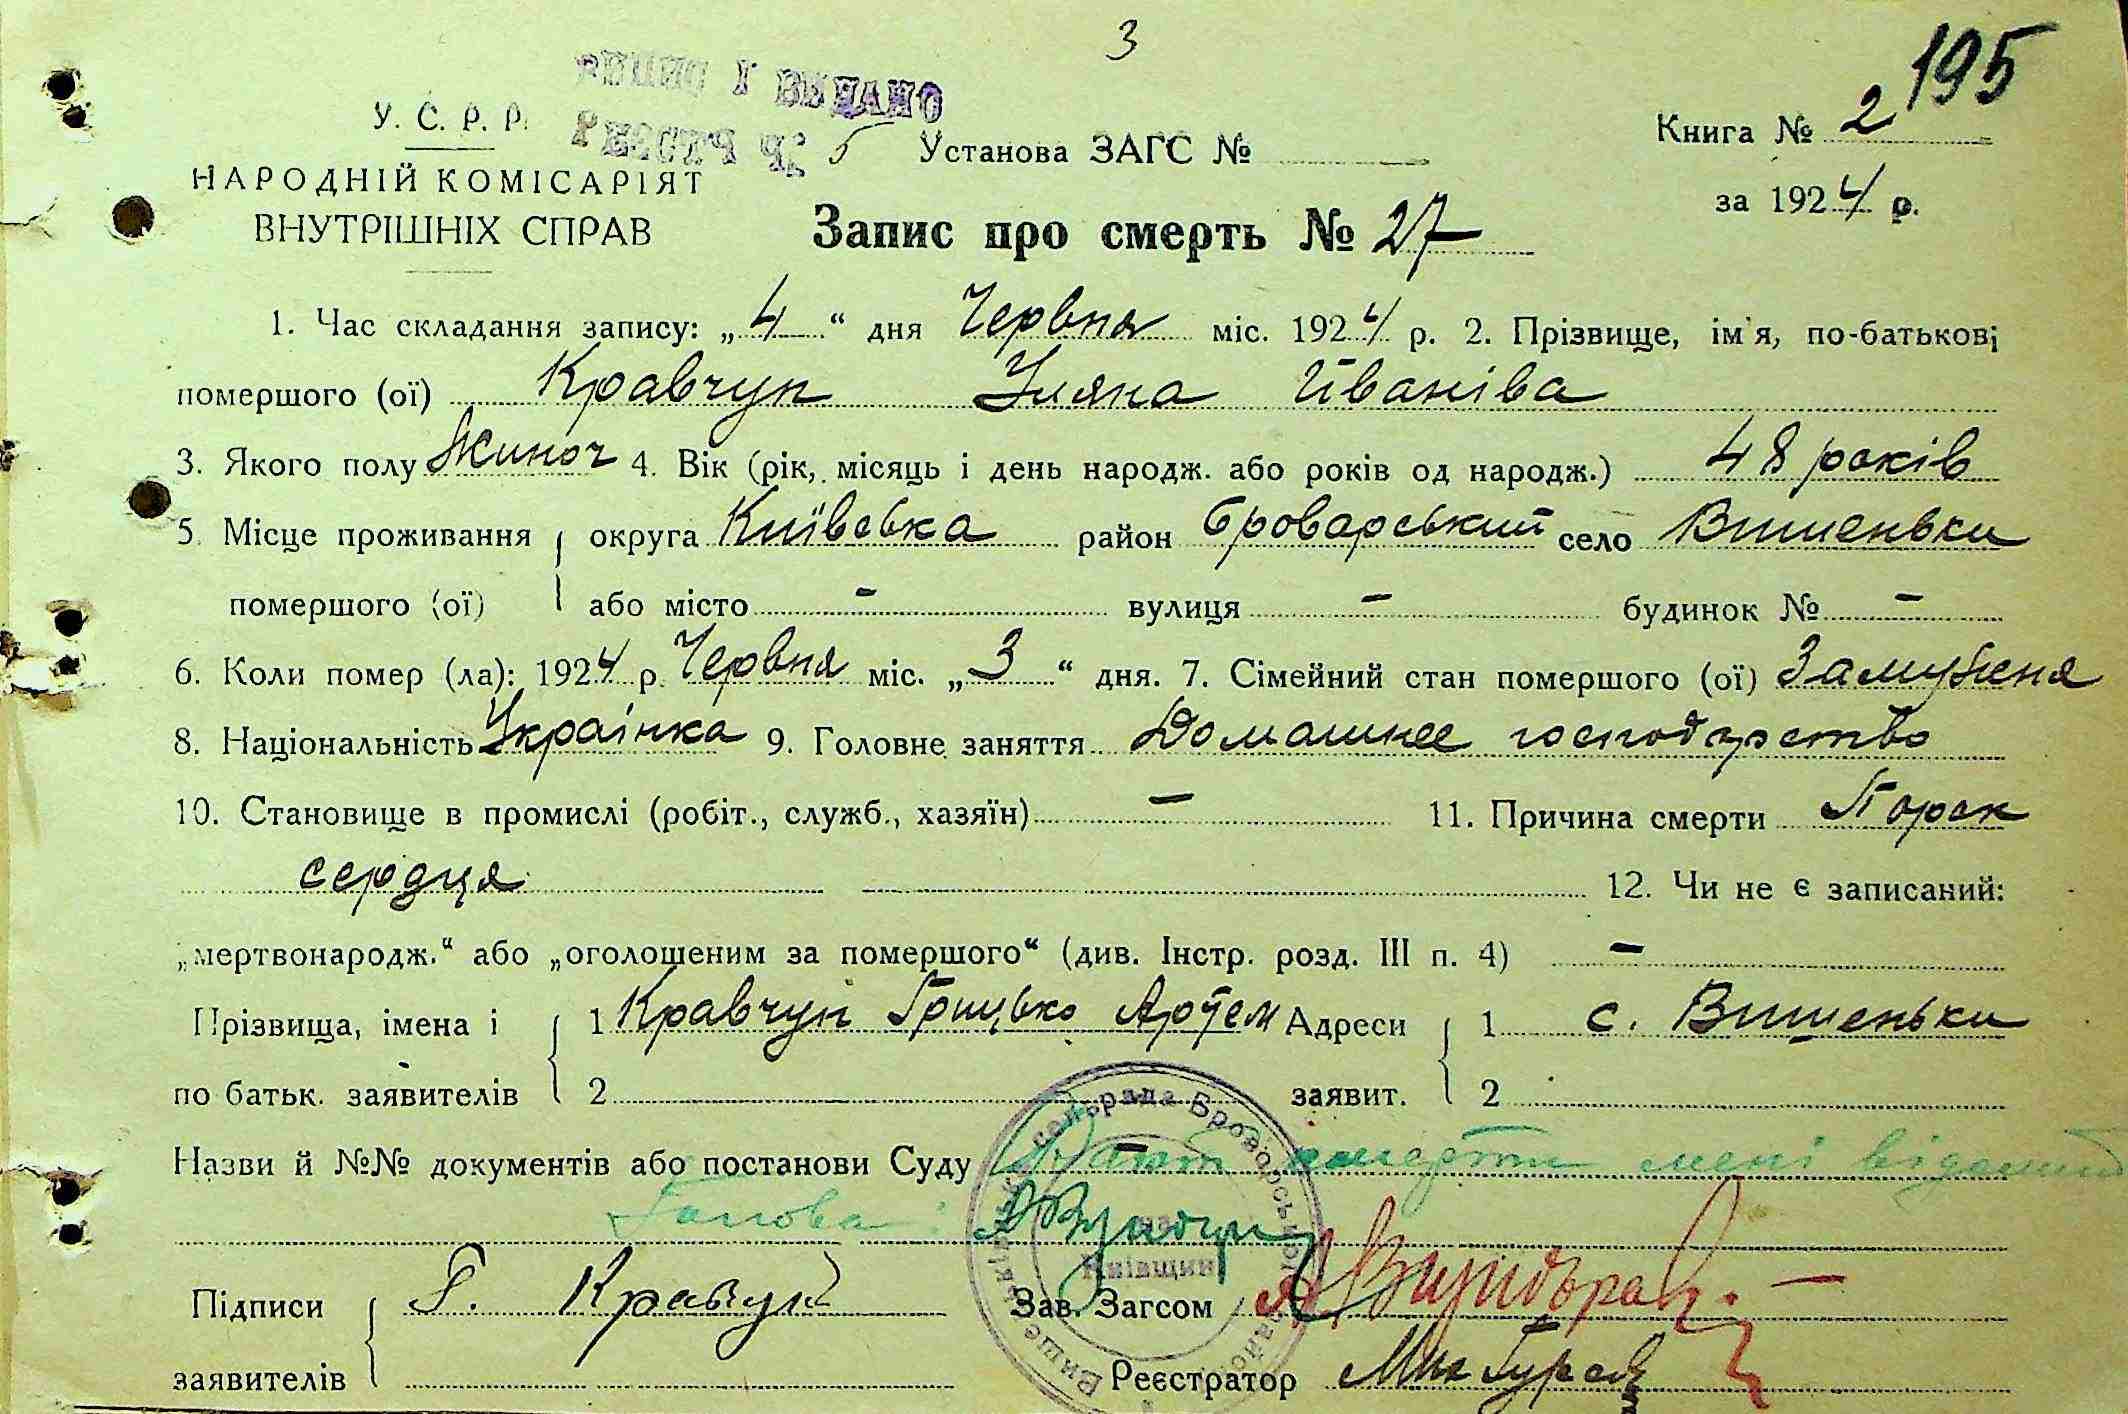 3
195
У. С. Р. Р.
І ВИДАНО
РЕЄСТР Ч. 5
Установа ЗАГС №
Книга № 2
НАРОДНІЙ КОМІСАРІЯТ
ВНУТРІШНІХ СПРАВ
за 1924 р.
Запис про смерть № 27
1. Час складання запису: „4“ дня Червня міс. 1924 р. 2. Прізвище, ім'я, по-батькові
помершого (ої) Кравчук Уляна Йваніва
3. Якого полу Жиноч 4. Вік (рік, місяць і день народж. або років од народж.) 48 років
5. Місце проживання округа Київська район Броварський село Вишеньки
помершого (ої) або місто - вулиця - будинок № -
6. Коли помер (ла): 1924 р. Червня міс. „3“ дня. 7. Сімейний стан помершого (ої) Замужня
8. Національність Українка 9. Головне заняття Домашнее господарство
10. Становище в промислі (робіт., служб., хазяїн) - 11. Причина смерти Порок
сердця
12. Чи не є записаний:
„мертвонародж.“ або „оголошеним за помершого“ (див. Інстр. розд. III п. 4) -
Прізвища, імена і 1 Кравчук Грицько Артем Адреси 1 с. Вишеньки
по батьк. заявителів 2 заявит. 2
Назви й №№ документів або постанови Суду Факт смерти мені відомий
Голова:
Київщини
Підписи Г. Кравчук Зав. Загсом
заявителів Реєстратор